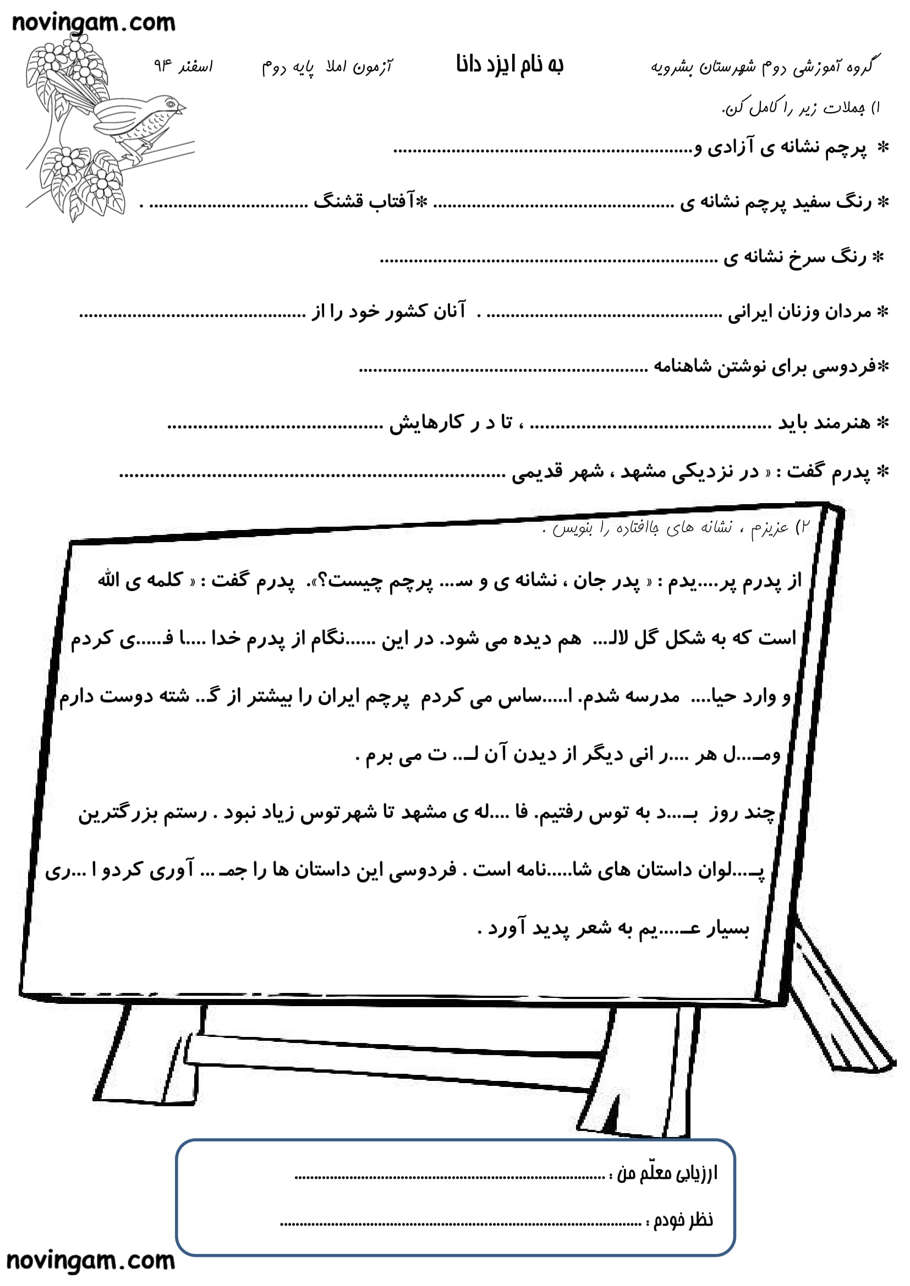 novingam.com
گروه آموزشی دوم شهرستان بشرویه به نام ایزد دانا آزمون املا پایه دوم اسفند ۹۴
۱) جملات زیر را کامل کن.
* پرچم نشانه ی آزادی و..............................................................
* رنگ سفید پرچم نشانه ی .................................................. *آفتاب قشنگ ................................. .
* رنگ سرخ نشانه ی ......................................................................
* مردان وزنان ایرانی ................................................. . آنان کشور خود را از ...............................................
*فردوسی برای نوشتن شاهنامه ............................................................
* هنرمند باید .................................................. ، تا د ر کارهایش .............................................
* پدرم گفت : « در نزدیکی مشهد ، شهر قدیمی ................................................................................
۲) عزیزم ، نشانه های جاافتاده را بنویس .
از پدرم پر....یدم : « پدر جان ، نشانه ی و سـ... پرچم چیست؟». پدرم گفت : « کلمه ی الله
است که به شکل گل لالـ... هم دیده می شود. در این ......نگام از پدرم خدا ....ا فـ.....ی کردم
و وارد حیا.... مدرسه شدم. ا.....ساس می کردم پرچم ایران را بیشتر از گـ.. شته دوست دارم
ومـ...ل هر ....ر انی دیگر از دیدن آن لـ.. ت می برم .
چند روز بـ...د به توس رفتیم. فا ....له ی مشهد تا شهرتوس زیاد نبود . رستم بزرگترین
پـ...لوان داستان های شا.....نامه است . فردوسی این داستان ها را جمـ ... آوری کردو ا ...ری
بسیار عـ....یم به شعر پدید آورد .
ارزیابی معلّم من : ...............................................................................
نظر خودم : ............................................................................................
novingam.com